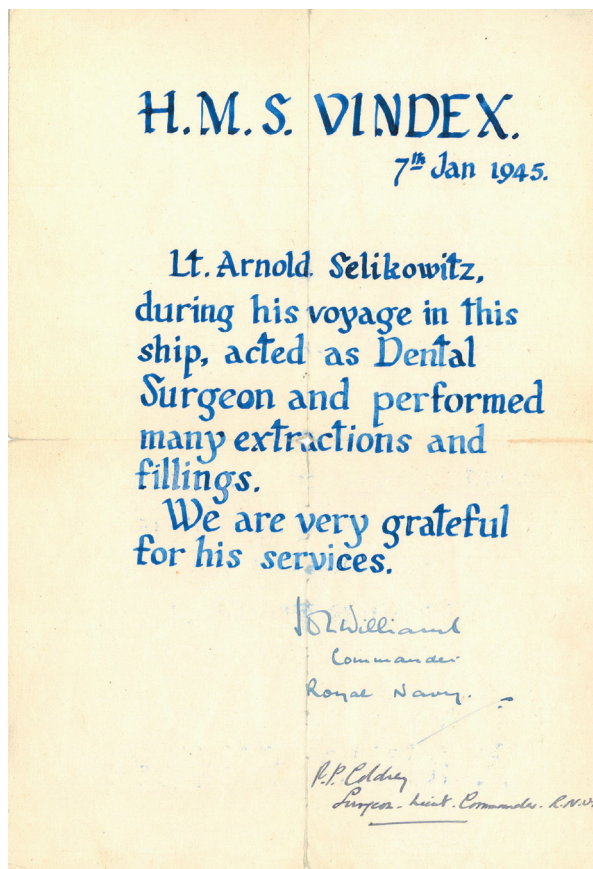 H.M.S. VINDEX.
7th Jan 1945.
Lt. Arnold Selikowitz,
during his voyage in this
ship, acted as Dental
Surgeon and performed
many extractions and
fillings.
We are very grateful
for his services.
Williams
Commander
Royal Navy.
R.P. Coldrey
Surgeon-Lieut.-Commander. R.N.V.